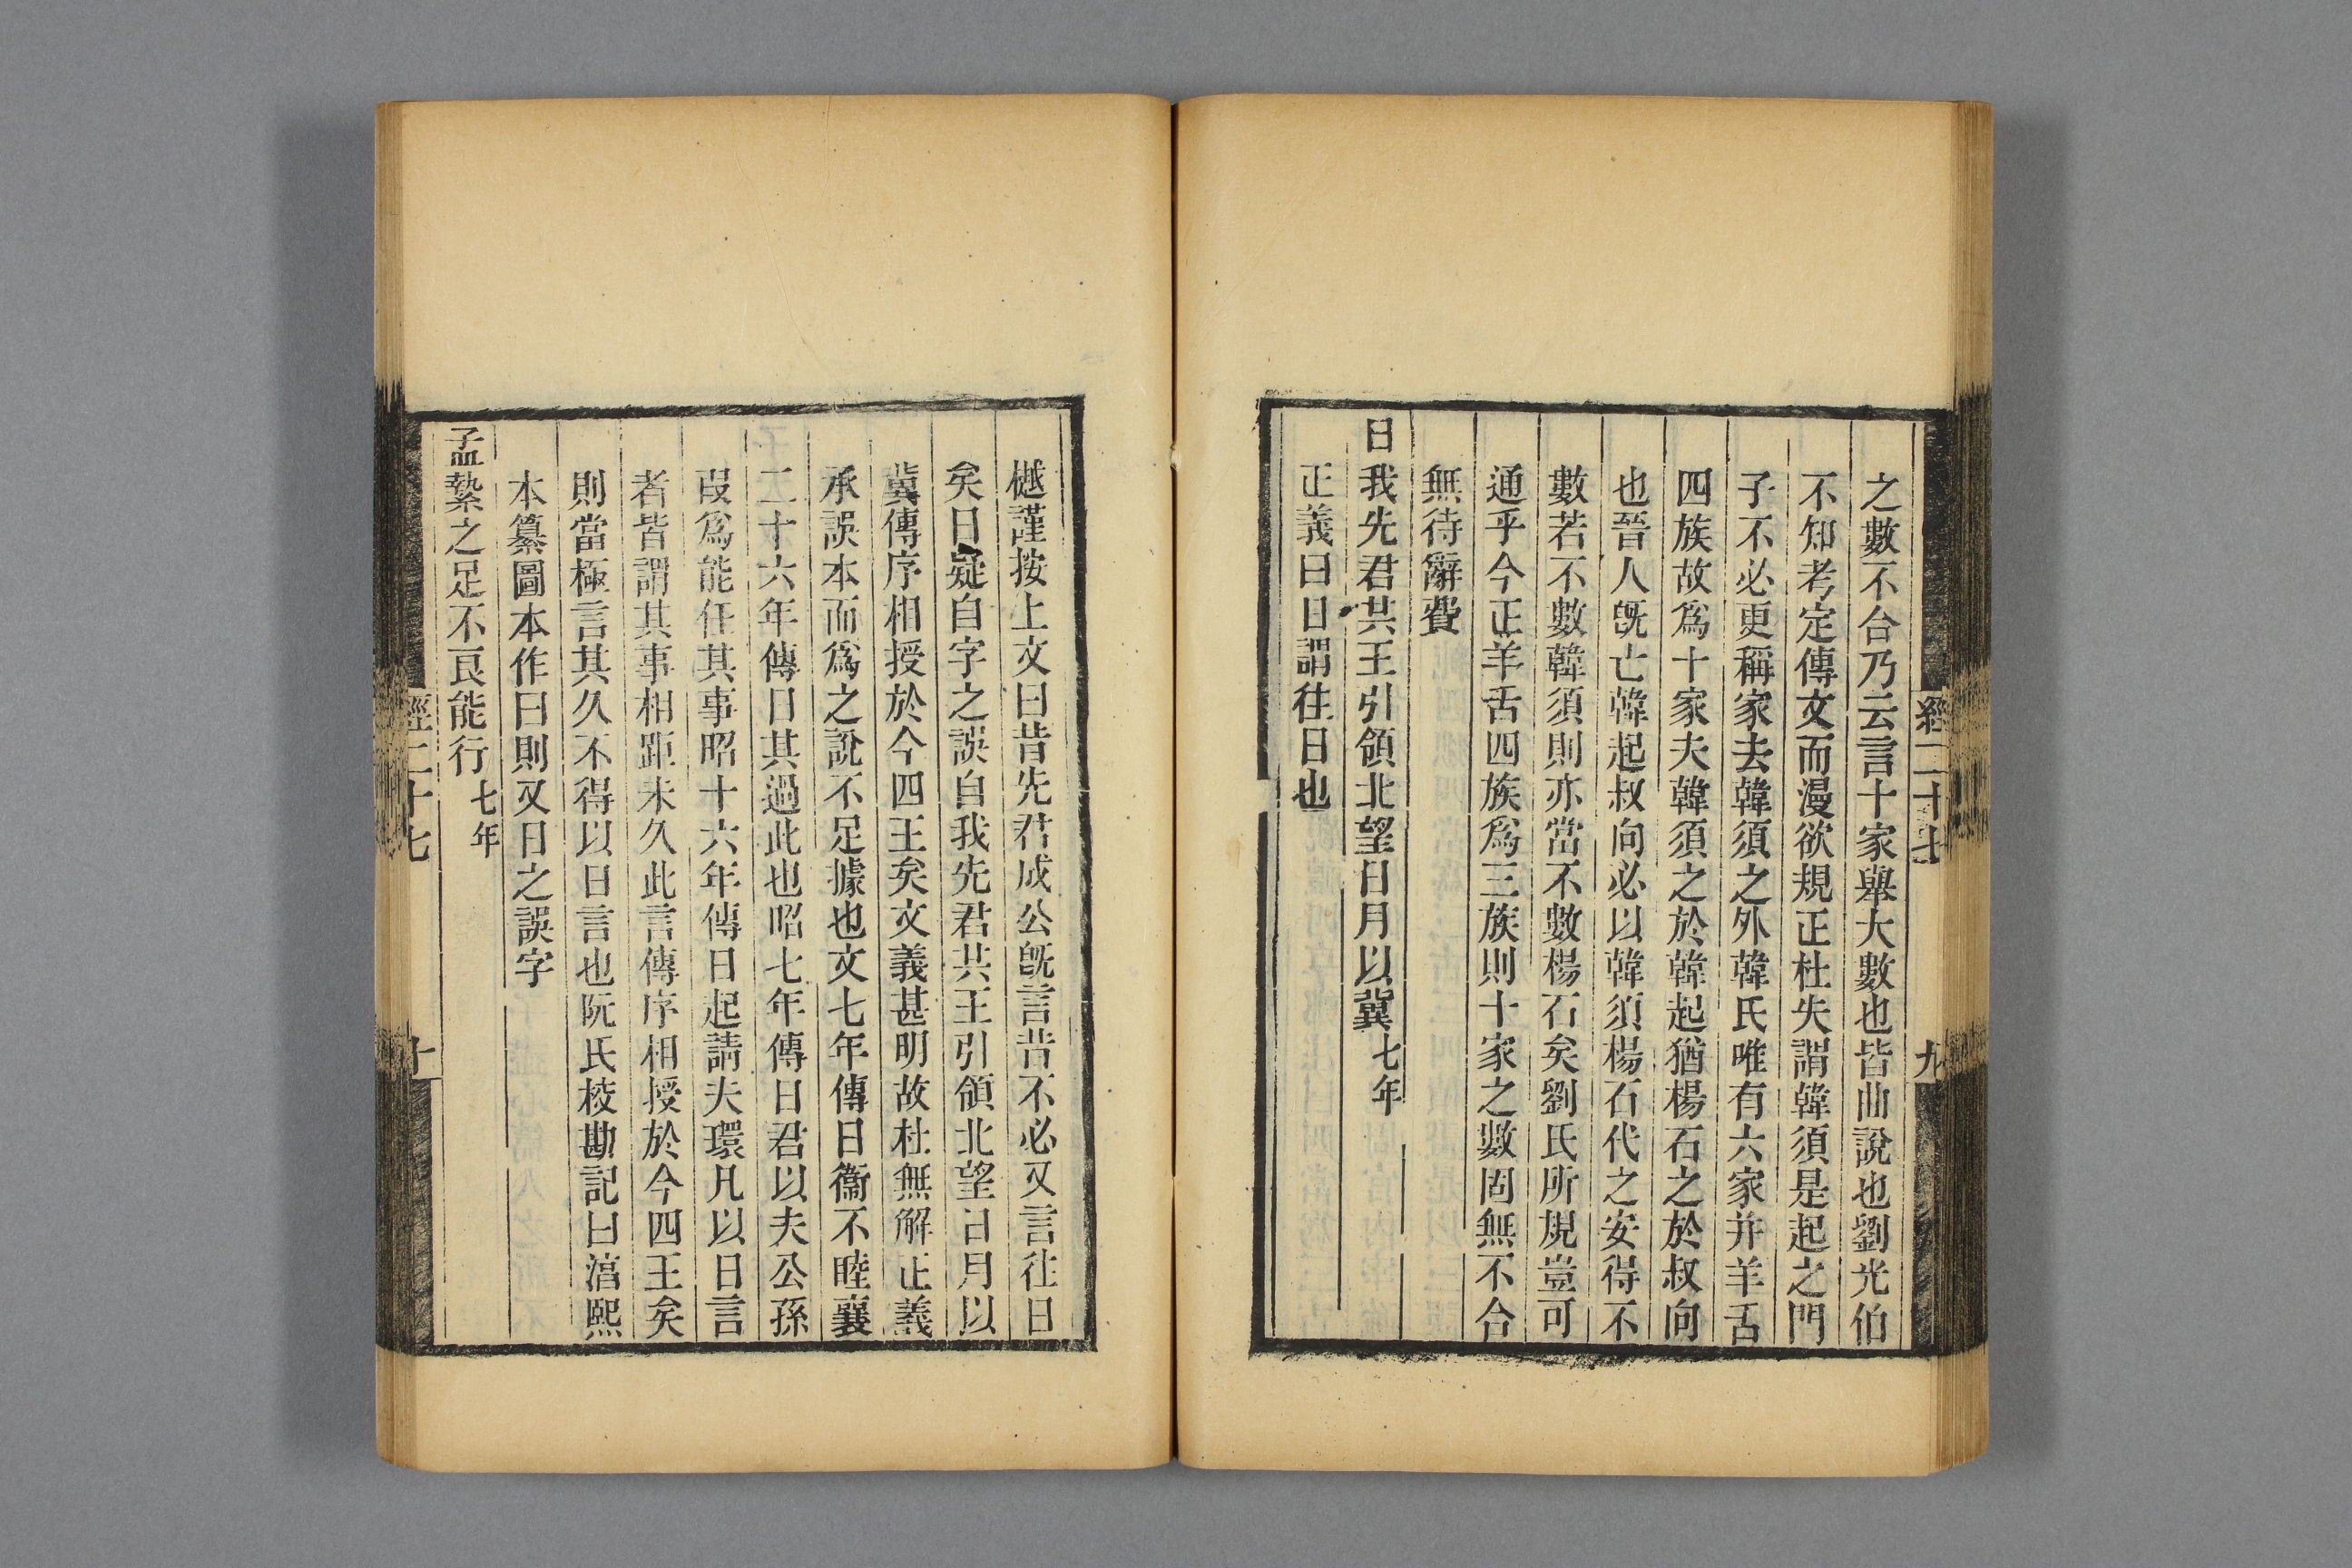 經二十七
九
之數不合乃云言十家舉大數也皆曲說也劉光伯
不知考定傳文而漫欲規正杜失謂韓須是起之門
子不必更稱家去韓須之外韓氏唯有六家并羊舌
四族故爲十家夫韓須之於韓起猶楊石之於叔向
也晉人旣亡韓起叔向必以韓須楊石代之安得不
數若不數韓須則亦當不數楊石矣劉氏所規豈可
通乎今正羊舌四族爲三族則十家之數固無不合
無待辭費
日我先君共王引領北望日月以冀七年
正義曰日謂往日也
樾謹按上文曰昔先君成公旣言昔不必又言往日
矣日疑自字之誤自我先君共王引領北望日月以
冀傳序相授於今四王矣文義甚明故杜無解正義
承誤本而爲之說不足據也文七年傳日衞不睦襄
二十六年傳日其過此也昭七年傳日君以夫公孫
段爲能任其事昭十六年傳日起請夫環凡以日言
者皆謂其事相距未久此言傳序相授於今四王矣
則當極言其久不得以日言也阮氏校勘記曰湻熙
本纂圖本作曰則又日之誤字
孟縶之足不良能行七年
經二十七
十